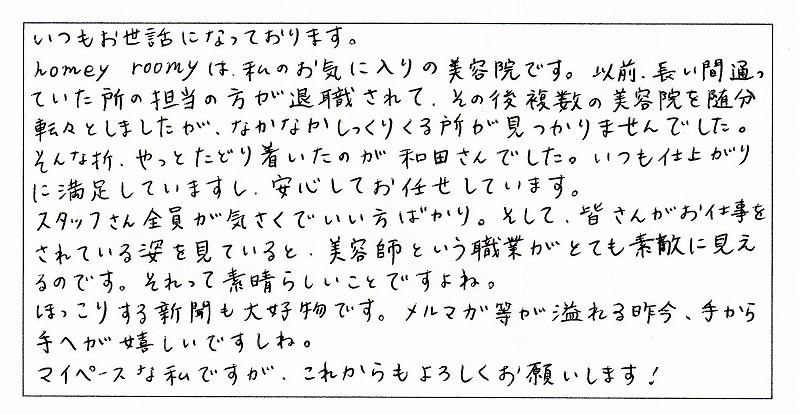 いつもお世話になっております。
homey roomyは、私のお気に入りの美容院です。以前、長い間通っ
ていた所の担当の方が退職されて、その後複数の美容院を随分
転々としましたが、なかなかしっくりくる所が見つかりませんでした。
そんな折、やっとたどり着いたのが和田さんでした。いつも仕上がり
に満足していますし、安心してお任せしています。
スタッフさん全員が気さくでいい方ばかり。そして、皆さんがお仕事を
されている姿を見ていると、美容師という職業がとても素敵に見え
るのです。それって素晴らしいことですよね。
ほっこりする新聞も大好物です。メルマガ等が溢れる昨今、手から
手へが嬉しいですしね。
マイペースな私ですが、これからもよろしくお願いします!